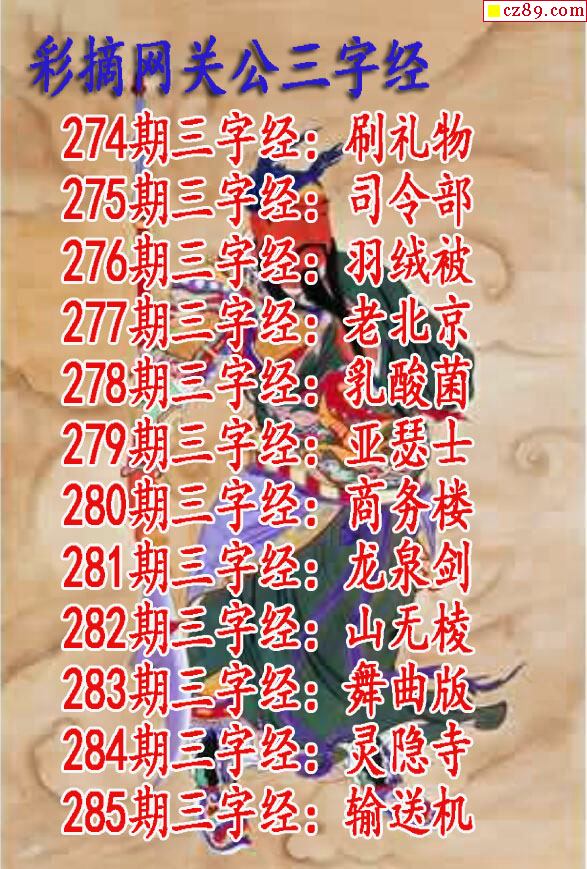 cz89.com
彩摘网关公三字经
274期三字经：刷礼物
275期三字经：司令部
276期三字经：羽绒被
277期三字经：老北京
278期三字经：乳酸菌
279期三字经：亚瑟士
280期三字经：商务楼
281期三字经：龙泉剑
282期三字经：山无棱
283期三字经：舞曲版
284期三字经：灵隐寺
285期三字经：输送机